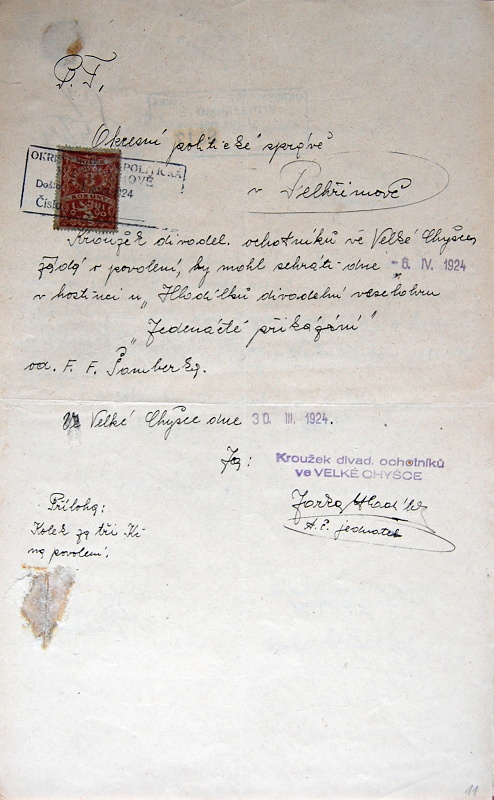 P. T.
Okresní politické správě
v Pelhřimově
OKRE POLITICKÁ
OVĚ
Došlo 924
Číslo
KORUNY
Kroužek divadel. ochotníků ve Velké Chýšce
žádá o povolení, by mohl sehráti dne - 6. IV. 1924
v hostinci u „Hladílků divadelní veselohru
„Jedenácté přikázání“
od F. F. Šamberka.
Ve Velké Chýšce dne 30. III. 1924.
Za:
Kroužek divad. ochotníků
ve VELKÉ CHYŠCE
Jarka Hladílek
jednatel
Příloha:
Kolek za tři Kč
na povolení.
11